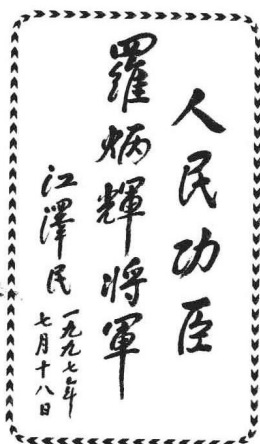 人民功臣
羅炳輝将軍
江澤民
一九九七年
七月十八日